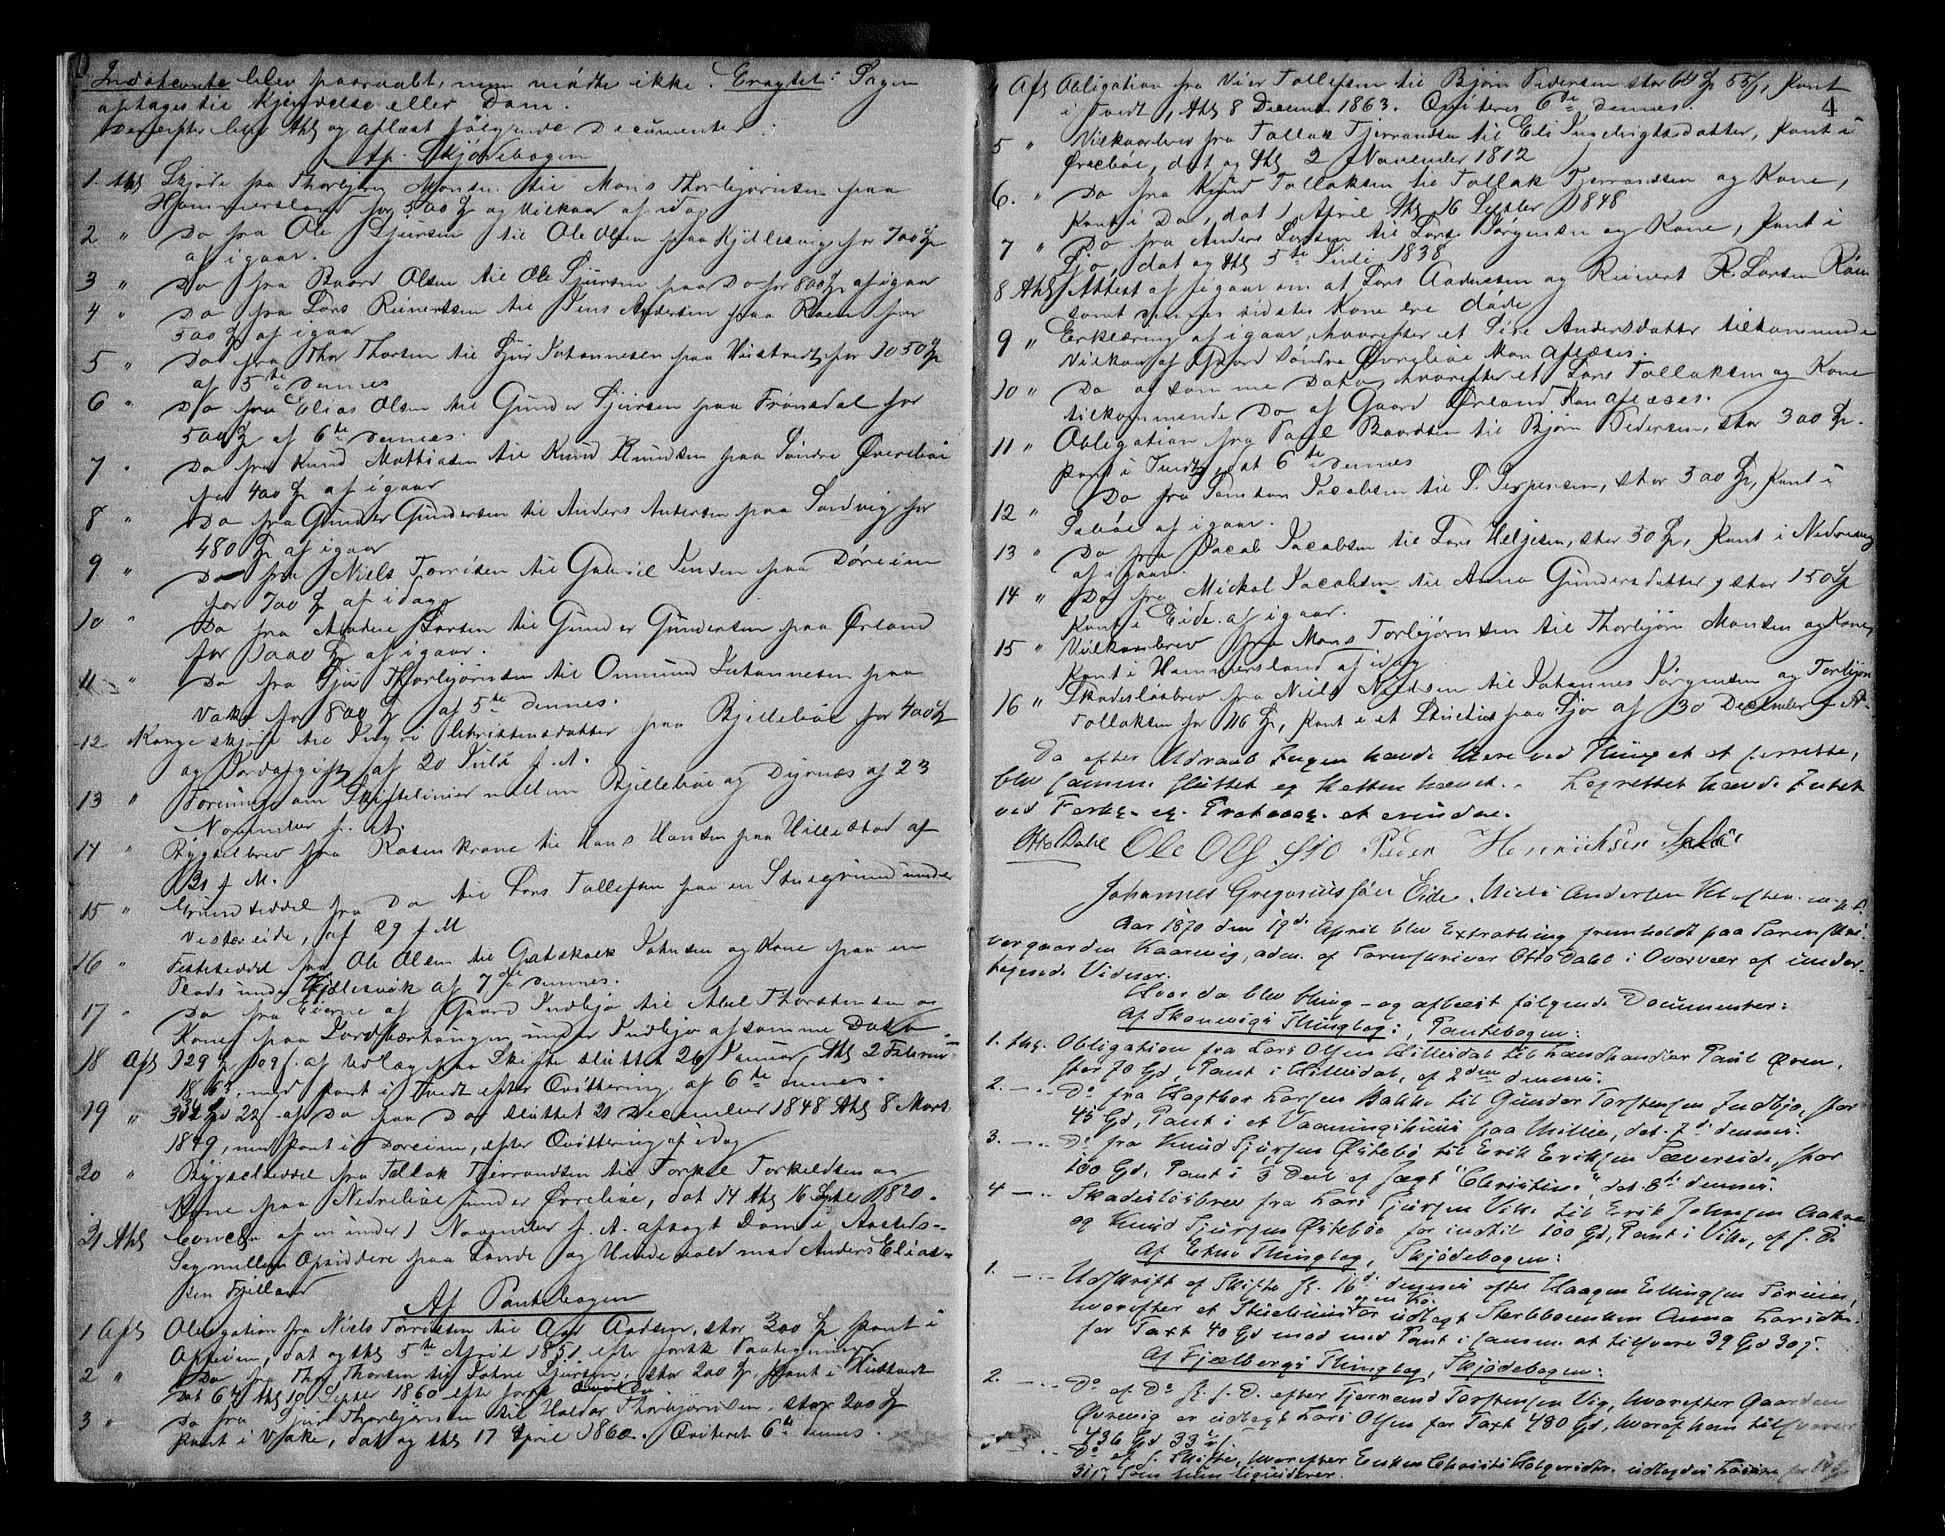 Indstevnte blev paaraabt, men mødte ikke. Eragtet: Sagen
optages til Kjendelse eller Dom.
Derefter blev thl og aflæst følgende Documenter:
Af Skjødebogen
1. thl Skjøde fra Thorbjørn Monsen til Mons Thorbjørnsen paa
Hammersland for 500 Sp og Vilkaar af idag
2 " Do fra Ole Sjursen til Ole Olsen paa Kjidlesvig for 700 Sp
af igaar.
3 " Do fra Baard Olsen til Ole Sjursen paa Do for 800 Sp af igaar
4 " Do fra Lars Reinertsen til Jens Andersen paa Røen for
500 Sp af igaar
5 " Do fra Thor Thorsen til Sjur Johannesen paa Hustvedt for 1050 Sp
af 5te dennes
6 " Do fra Elias Olsen til Gunder Sjursen paa Frønsdal for
500 Sp af 6te dennes.
7 " Do fra Knud Mathiasen til Knud Knudsen paa Søndre Øvrebøe
for 400 Sp af igaar
8 " Do fra Gunder Gundersen til Anders Andersen paa Sandvig for
480 Sp af igaar
9 " Do fra Niels Tørrisen til Gabriel Jensen paa Døreim
for 700 Sp af idag
10 " Do fra Andreas Larsen til Gunder Gundersen paa Ørland
for 1000 Sp af igaar.
11 " Do fra Sjur Thorbjørnsen til Onmund Johannesen paa
Vake for 800 Sp af 5te dennes.
12 Kongeskjøde til Ingri Christensdatter paa Bjellebøe for 400 Sp
og Jordafgift af 20 Juli f. A.
13 " Forening om Skiftelinier mellem Bjellebøe og Dyrnæs af 23
November f. A.
14 " Bygselbrev fra Rosenkrone til Hans Hansen paa Hillestad af
31 f. M.
15 " Grundseddel fra Do til Lars Tollefsen paa en Stuegrund under
Vestereide, af 29 f. M
16 " Festeseddel fra Ole Olsen til Gatskalk Johnsen og Kone paa en
Plads under Kjidlesvik af 7de dennes.
17 " Do fra Eierne af Gaard Indbjo til Abel Thorstensen og
Kone paa Jordbærhaugen under Indbjo af samme Dato
18 Afl 129 Sp 109 s. af Udlæg paa Skifte sluttet 26 Januar, thl 2 Februar
1863, med Pant i Tvedt efter Qvittering af 6te dennes.
19 " 332 Sp 22 s af Do paa Do sluttet 21 December 1848 thl 8 Marts
1849, med Pant i Døreim, efter Qvittering af idag
20 " Bygselseddel fra Tollak Tjerrandsen til Torkel Torkeldsen og
Kone paa Nedrebøe under Øvrebøe, dat 14 thl 16 Septbr 1820.
21 thl Concln af en under 1 November f. A. afsagt Dom i Aasteds-
Sag mellem Opsiddere paa Lande og Uvede mod Anders Elias-
sen Fjelland
Af Pantebogen
1 Afl Obligation fra Niels Tørrisen til Aad Aadsen, stor 300 Sp Pant i
Opreim, dat og thl 5te April 1851 efter forsk Qvittering
2 " Do fra Thor Thorsen til Johne Sjursen, stor 200 Sp, Pant i Hustvedt
dat 6 thl 10 Septbr 1860 efter forsk
3 " Do fra Sjur Thorbjørnsen til Haldor Thorbjørnsen, stor 200 Sp
Pant i Vake, dat og thl 17 April 1860. Qviteret 6te dennes.
4
4 Afl Obligation fra Vier Tollefsen til Bjørn Pedersen stor 64 Sp 55 s, Pant
i Tvedt, thl 8 December 1863. Qviteres 6te dennes.
5 " Vilkaarbrev fra Tollak Tjerrandsen til Eli Ingebrigtsdatter, Pant i
Øvrebøe, dat og thl 2 November 1812
6. " Do fra Knud Tollaksen til Tollak Tjerrandsen og Kone,
Pant i Do, dat 1 April thl 16 Septbr 1848
7 " Do fra Anders Larsen til Lars Jørgensen og Kone, Pant i
Sjo, dat og thl 5te Juli 1838
8 thl Attest af igaar om at Lars Aadnesen og Reinert R. Larsen Røen
samt dennes sidstes Kone ere døde
9 " Erklæring af igaar, hvorefter et Siri Andersdatter tilkommende
Vilkaar af Gaard Søndre Øvrebøe kan aflæses.
10 " Do af samme Dato, hvorefter et Lars Tollaksen og Kone
tilkommende Do af Gaard Ørland kan aflæses.
11 " Obligation fra Paul Baardsen til Bjørn Pedersen, stor 300 Sp.
Pant i Tvedt, dat 6te dennes
12 " Do fra Tomtan Jacobsen til P. Jespersen, stor 300 Sp, Pant i
Sæbøe af igaar.
13 " Do fra Jacob Jacobsen til Lars Heljesen, stor 30 Sp, Pant i Nedrevaag
af igaar.
14 " Do fra Mickal Jacobsen til Anna Gundersdatter, stor 150 Sp
Pant i Eide. af igaar.
15 " Vilkaarbrev fra Mons Torbjørnsen til Thorbjørn Monsen og Kone,
Pant i Hammersland af idag
16 " Skadesløsbrev fra Niels Nielsen til Johannes Jørgensen og Torbjørn
Tollaksen for 116 Sp, Pant i et Stuehus paa Sjo af 30 December f. A.
Da efter Udraab Ingen havde Mere ved Thinget at forrette,
blev samme sluttet og Retten hævet. Lagrettet havde Intet
ved Forh. og Protocoll. at erindre.
Otto Dahl Ole Ols Sjo Peder Henrichsen Sæbø
Johannes Gregoriussøn Eide. Niels Andersen m. p. P.
Aar 1870 den 19d. April blev Extrathing fremholdt paa Sorenskri-
vergaarden Kaarevig, adm. af Sorenskriver Otto Dahl i Overvær af under-
tegnede Vidner.
Hvor da blev thing- og aflæst følgende Documenter:
Af Skonevigs Thinglag; Pantebogen:
1. thl. Obligation fra Lars Olsen Hilleidal til Landhandler Paul Øren,
stor 70 Sp, Pant i Hilleidal, af 2den dennes.
2. — .. Do fra Hagthor Larsen Bakke til Gunder Torstensen Indbjo, stor
45 Sp, Pant i et Vaaningshuus paa Milie, dat. 7d. dennes.
3. — .. Do fra Knud Sjursen Østebø til Erik Eriksen Tævereide, stor
100 Sp, Pant i 3 Deel af Jagt "Christine", dat. 8de dennes.
4 — .. Skadesløsbrev fra Lars Sjursen Vike til Erik Johnsen Aakre
og Knud Sjursen Østebøe for indtil 100 Sp, Pant i Vike, af s. D.
Af Etne Thinglag, Skjødebogen:
1. — .. Udskrift af Skifte sl. 16d. dennes efter Haagen Ellingsen Søreim,
hvorefter et Stuehuus og en Ko er udlagt Sterkboenken Anna Larsdtr.
for Taxt 40 Sp mod med Pant i samme at tilsvare 39 Sp 30 s.
Af Fjælbergs Thinglag, Skjødebogen:
2. — .. Do af Do sl. s. D. efter Tjerand Torstensen Vig, hvorefter Gaarden
Øvrevig er udlagt Lars Olsen for Taxt 480 Sp, hvoraf ham tilsvarer
436 Sp 33 ½ s.
3 — .. Do af s. Skifte, hvorefter Enken Christi Holgersdtr. udlagdes Løsøre for
31 s som hun liqviderer.